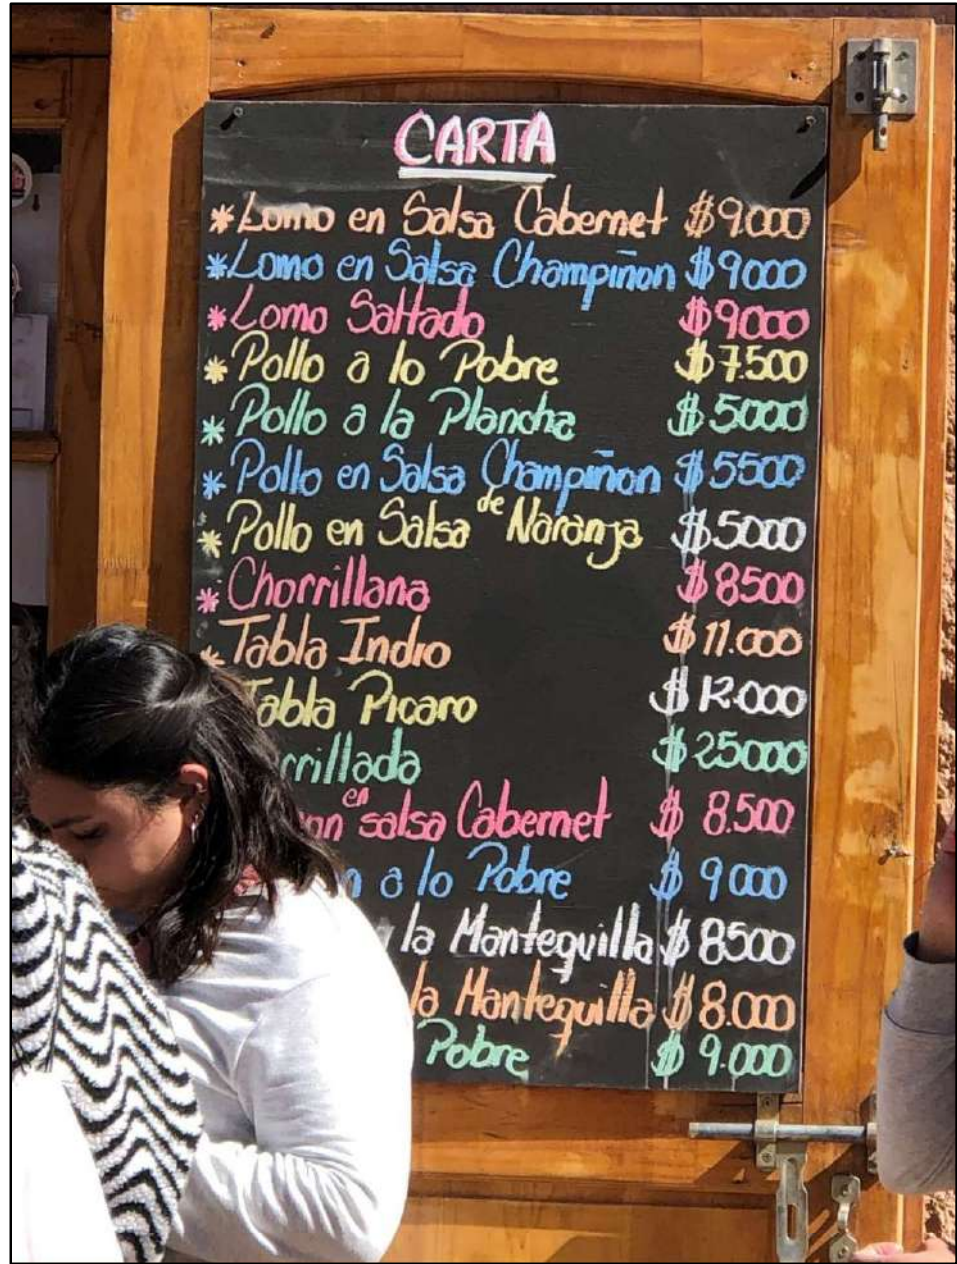 CARTA
* Lomo en Salsa Cabernet $9.000
* Lomo en Salsa Champiñon $9000
* Lomo Saltado $9000
* Pollo a lo Pobre $7.500
* Pollo a la Plancha $5000
* Pollo en Salsa Champiñon $5500
* Pollo en Salsa de Naranja $5000
* Chorrillana $8500
* Tabla Indio $11.000
abla Picaro $12.000
rrillada $25000
en salsa Cabernet $8.500
a lo Pobre $9000
la Mantequilla $8500
la Mantequilla $8.000
Pobre $9.000